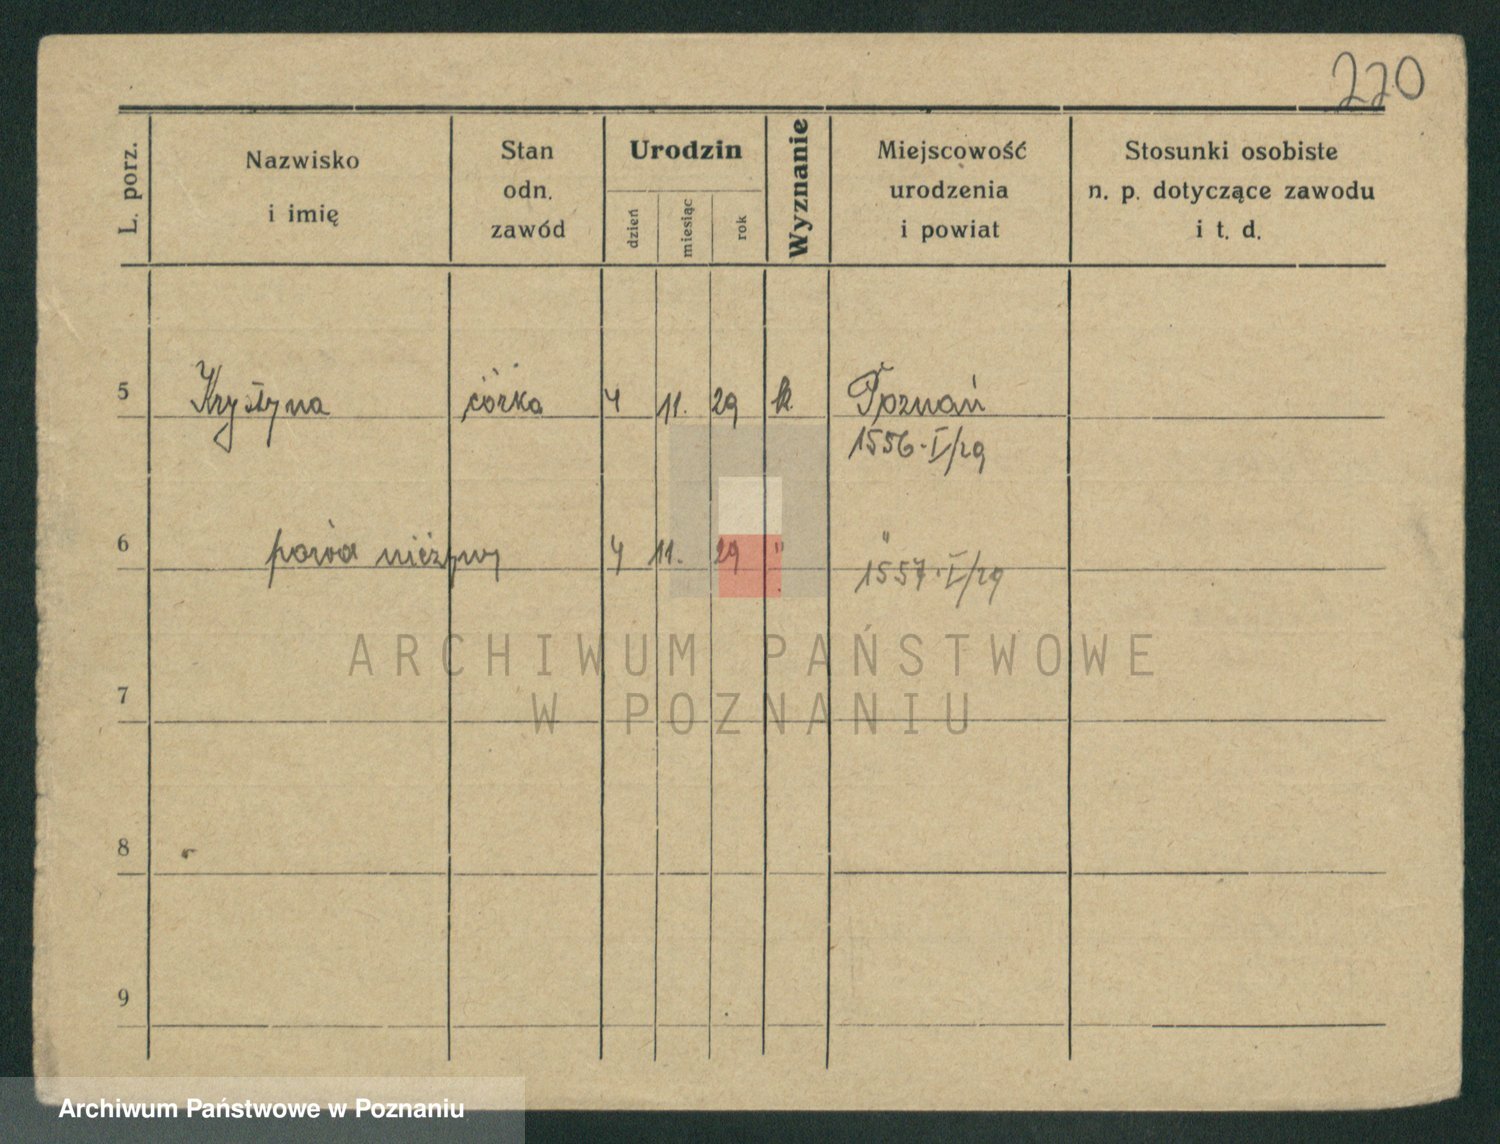 220
L. porz.
Nazwisko
i imię
Stan
odn.
zawód
Urodzin
dzień
miesiąc
rok
Wyznanie
Miejscowość
urodzenia
i powiat
Stosunki osobiste
n. p. dotyczące zawodu
i t. d.
5 Krystyna córka 4 11. 29 k. Poznań
1556·I/29
6 nieżywy 4 11. 29 " "
1557·I/29
7
8
9
ARCHIWUM PAŃSTWOWE
W POZNANIU
Archiwum Państwowe w Poznaniu